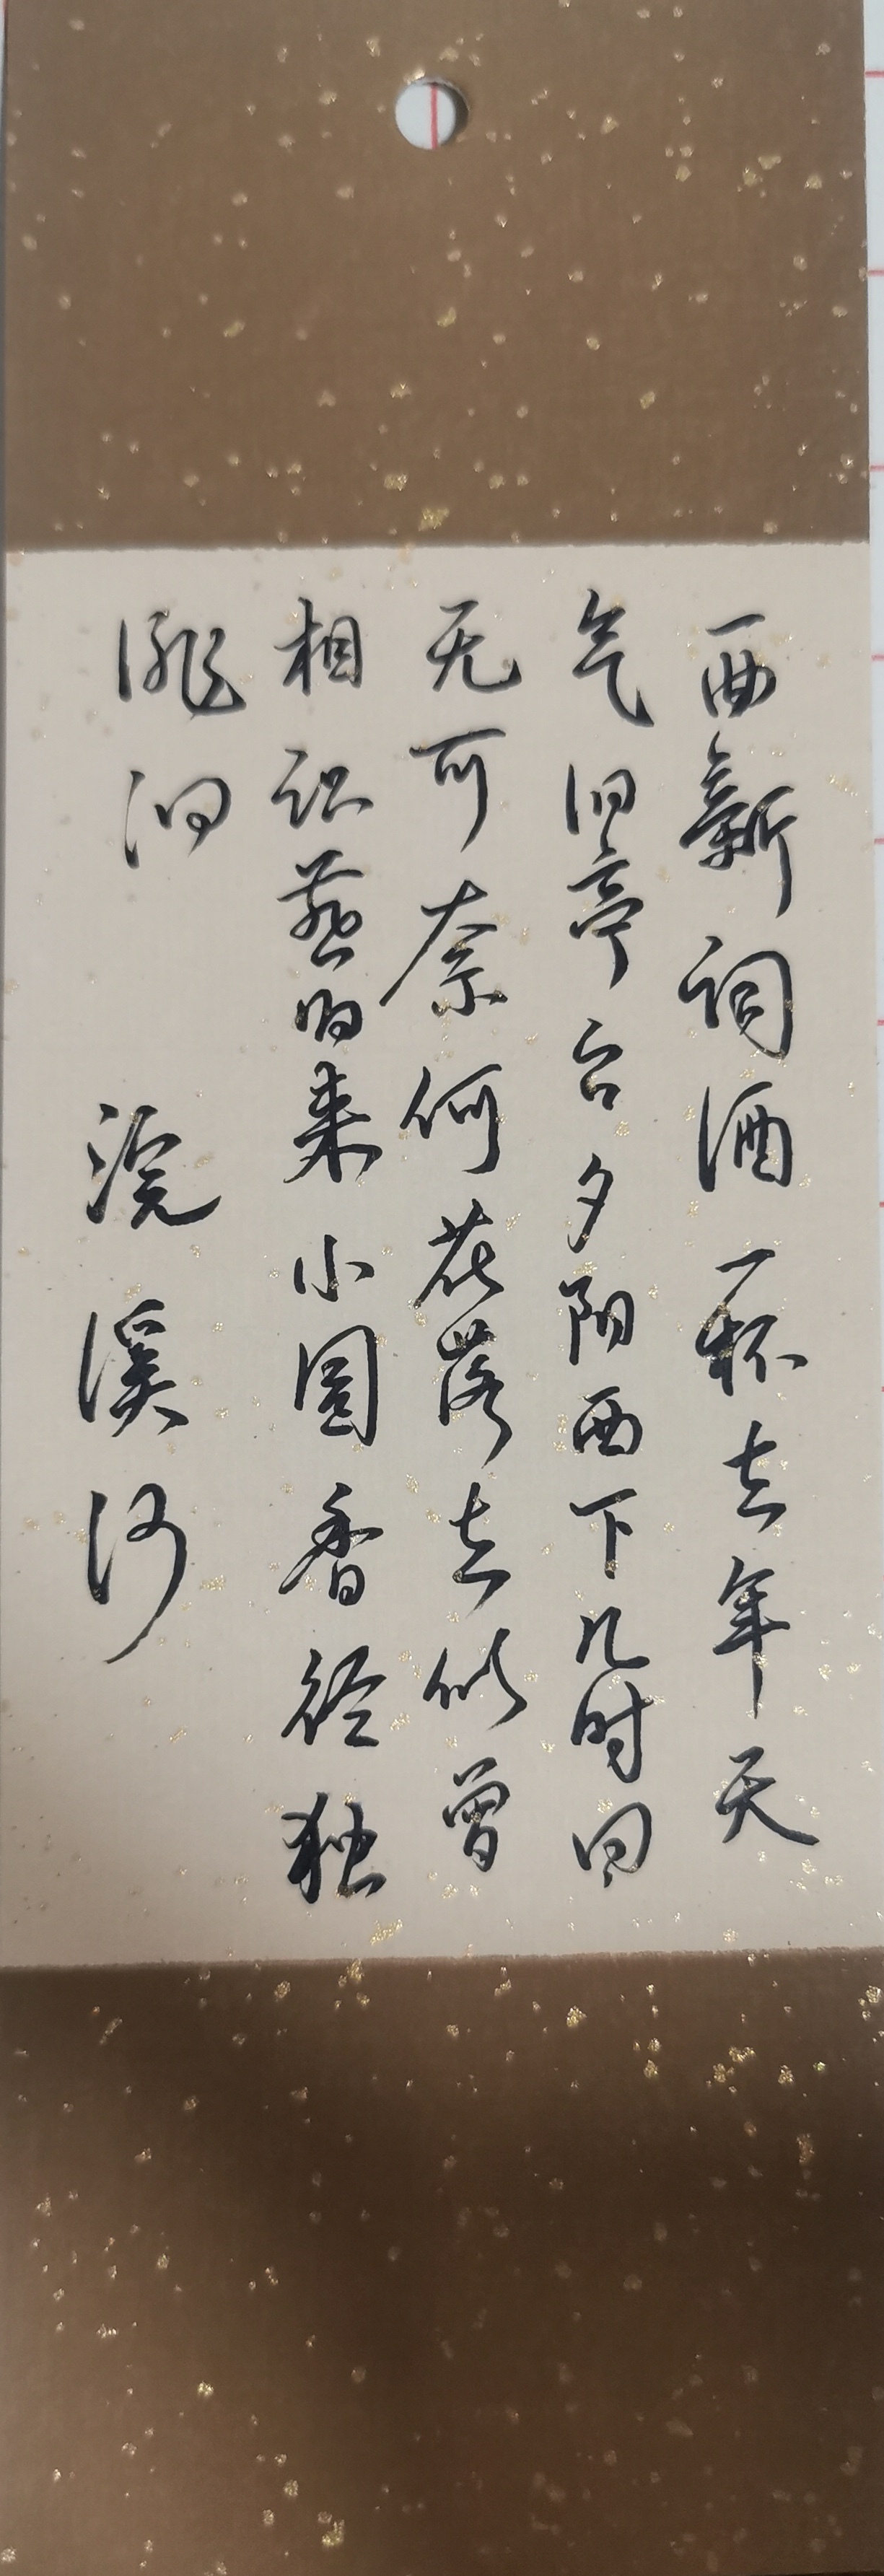 一曲新词酒一杯去年天
气旧亭台夕阳西下几时回
无可奈何花落去似曾
相识燕归来小园香径独
徘徊 浣溪沙